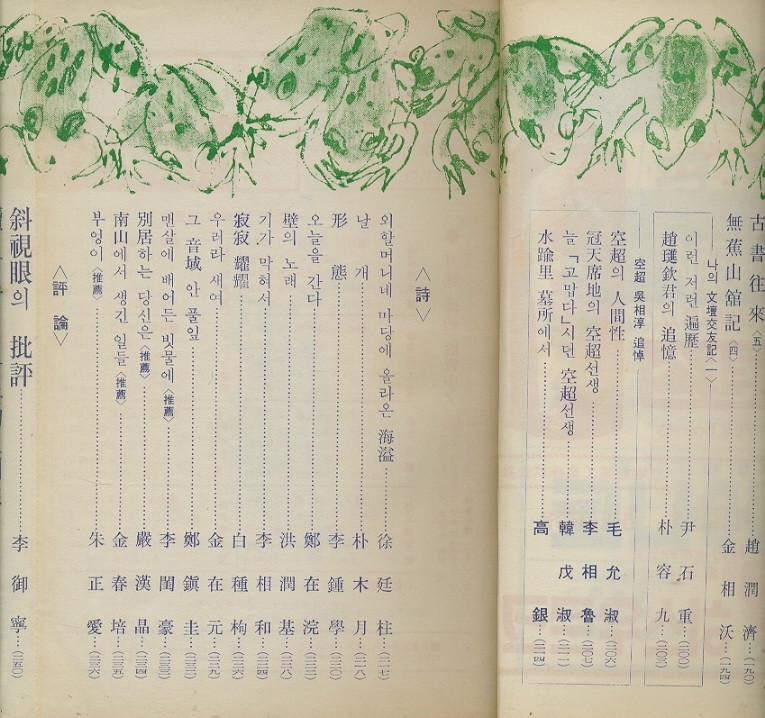 古書往來〈五〉……趙潤濟…(一九○)
無蕉山舘記〈四〉……金相沃…(一九四)
나의 文壇交友記〈一〉
이런 저런 遍歷……尹石重…(二○○)
趙璉欽君의 追憶……朴容九…(二○三)
空超 吳相淳 追悼
空超의 人間性……毛允淑…(二○六)
冠天席地의 空超선생……李相魯…(二○七)
늘 「고맙다」시던 空超선생……韓戊淑…(二一一)
水踰里 墓所에서……高銀…(二一四)
〈詩〉
외할머니네 마당에 올라온 海溢……徐廷柱…(二一七)
날개……朴木月…(二一八)
形態……李鍾學…(二二○)
오늘을 간다……鄭在浣…(二二二)
壁의 노래……洪潤基…(二二八)
기가 막혀서……李相和…(二二四)
寂寂 耀耀……白種枸…(二二六)
우러라 새여……金在元…(二二九)
그 音域 안 풀잎……鄭鎭圭…(二三二)
맨살에 배어든 빗물에〈推薦〉……李閏豪…(二三三)
別居하는 당신은〈推薦〉……嚴漢晶…(二三四)
南山에서 생긴 일들〈推薦〉……金春培…(二三五)
부엉이〈推薦〉……朱正愛…(二三六)
〈評論〉
斜視眼의 批評……李御寧…(二五○)